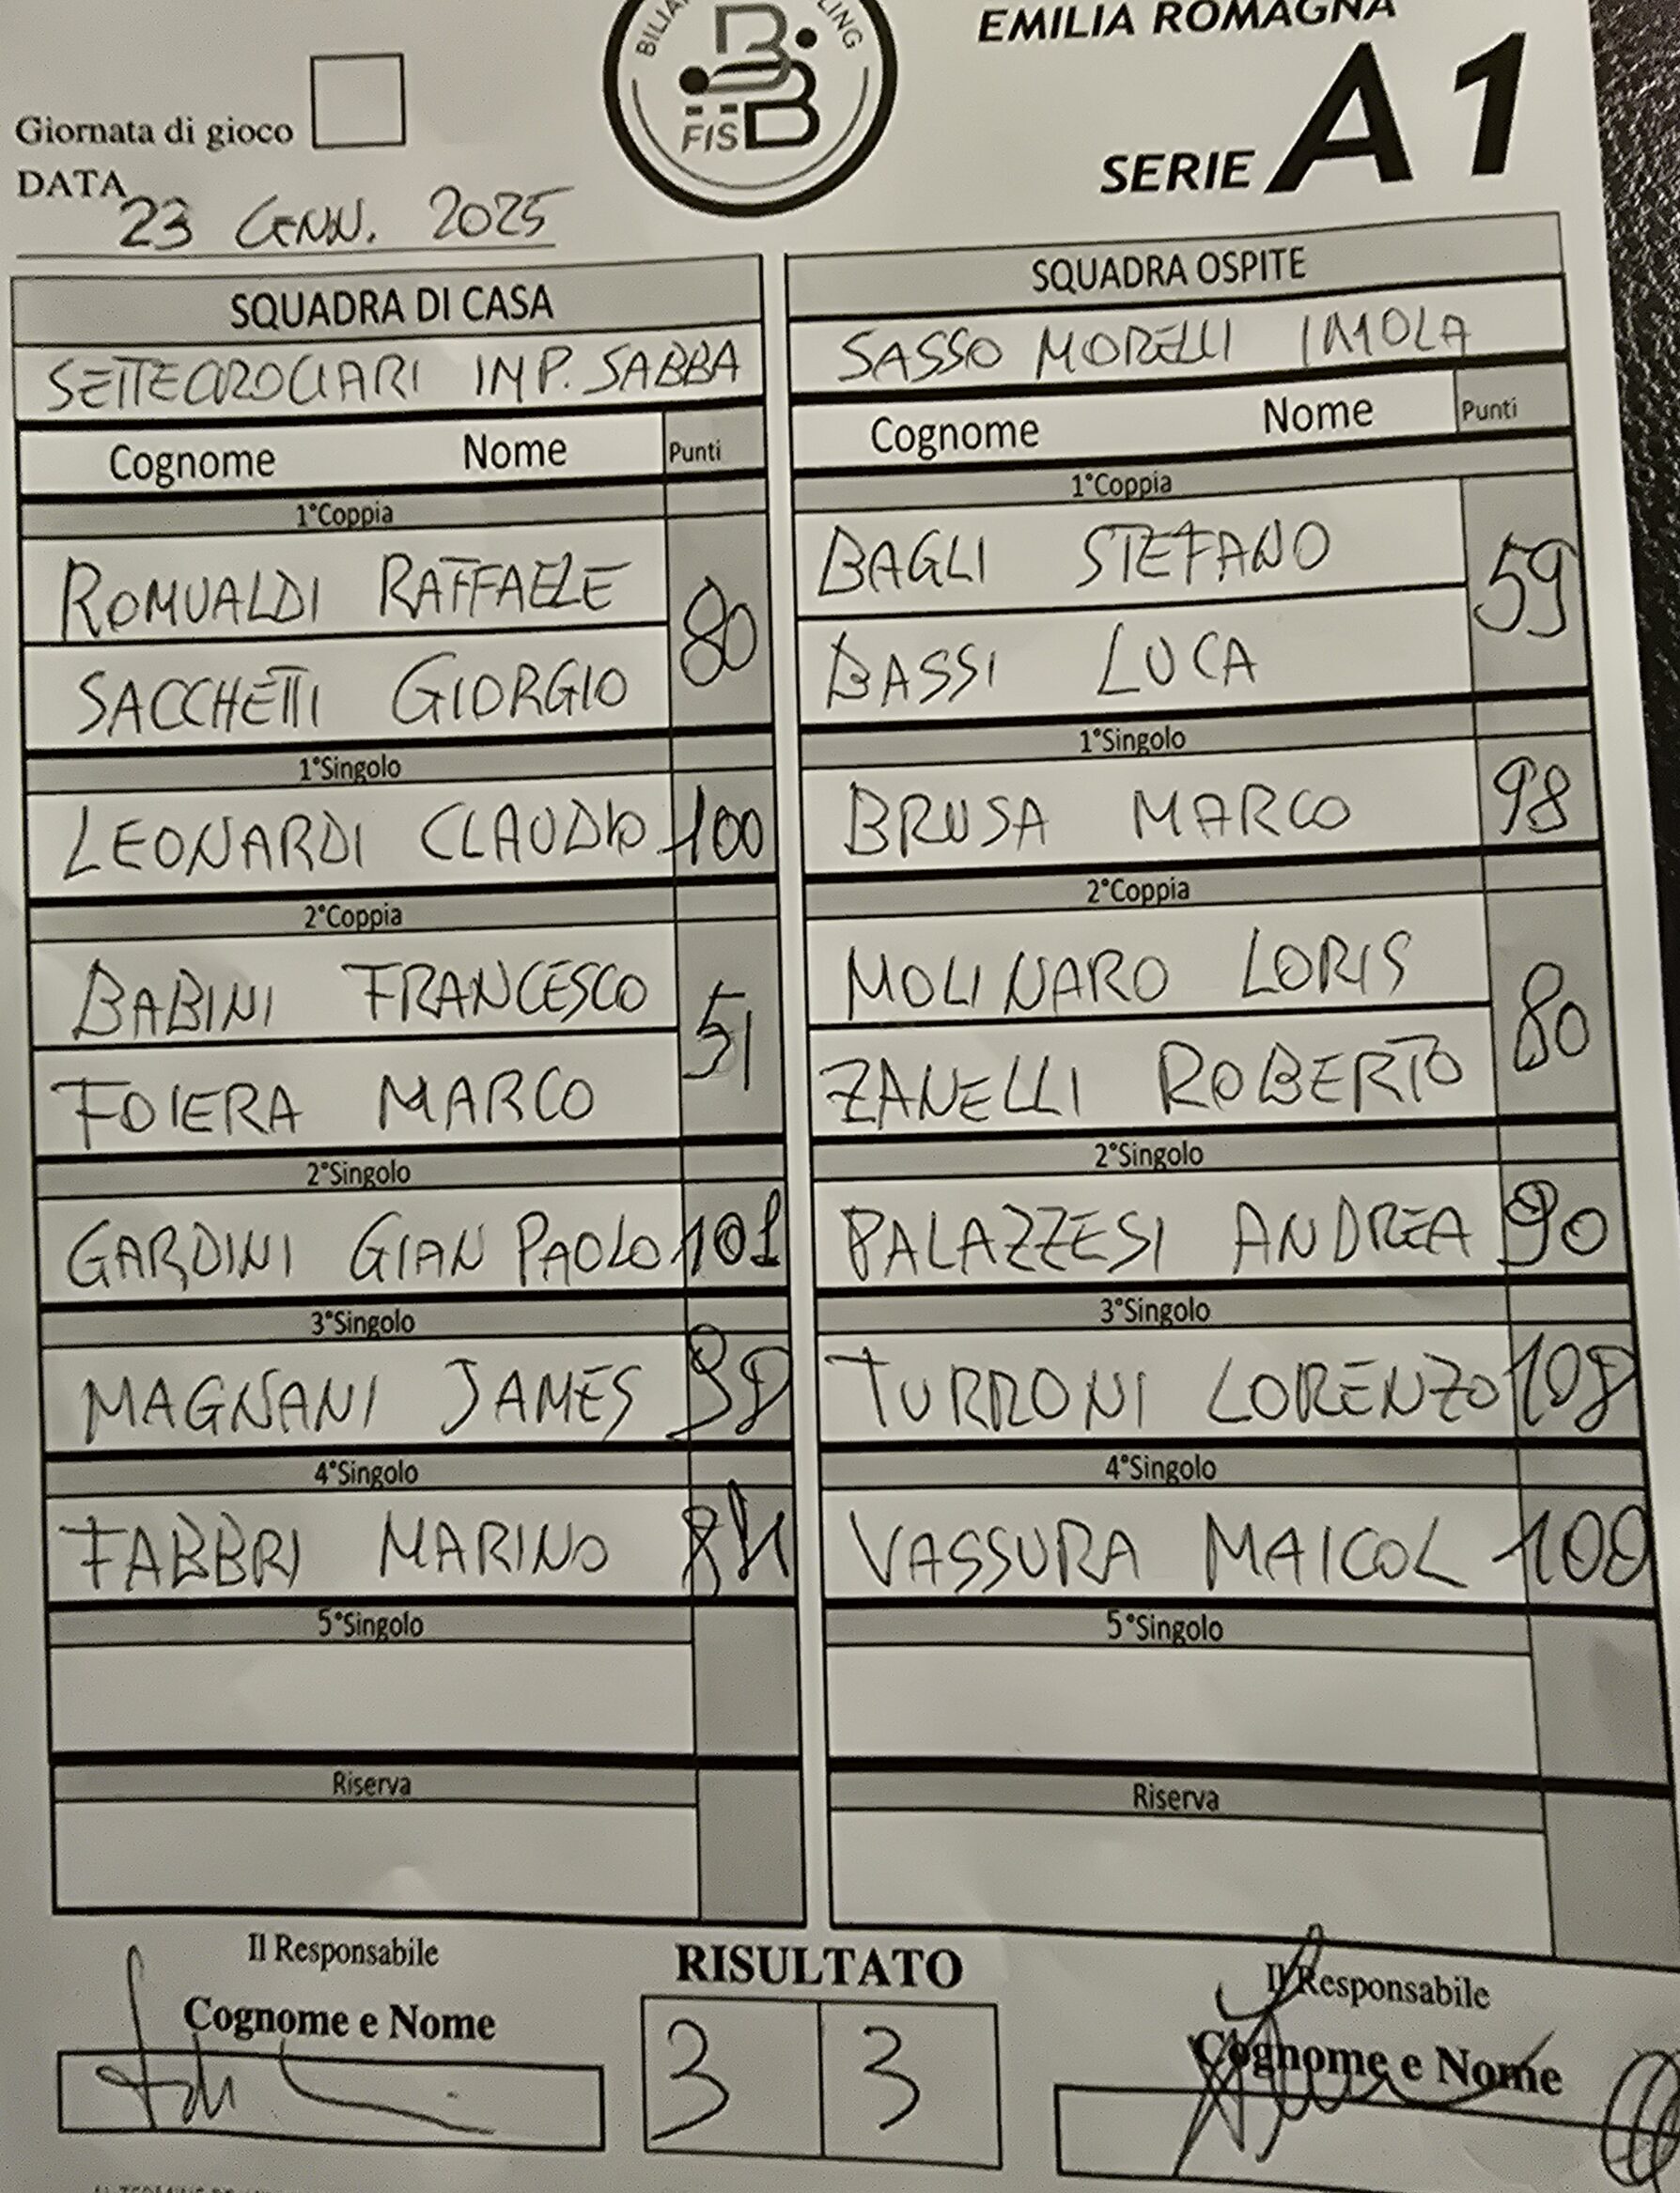 BILIA
LING
FISBB
EMILIA ROMAGNA
SERIE A1
Giornata di gioco
DATA 23 GENN. 2025
SQUADRA DI CASA
SETTECROCIARI IMP. SABBA
Cognome Nome Punti
1°Coppia
ROMUALDI RAFFAELE
80
SACCHETTI GIORGIO
1°Singolo
LEONARDI CLAUDIO 100
2°Coppia
BABINI FRANCESCO
51
FOIERA MARCO
2°Singolo
GARDINI GIAN PAOLO 101
3°Singolo
MAGNANI JAMES 98
4°Singolo
FABBRI MARINO
5°Singolo
Riserva
SQUADRA OSPITE
SASSO MORELLI IMOLA
Cognome Nome Punti
1°Coppia
BAGLI STEFANO
59
BASSI LUCA
1°Singolo
BRUSA MARCO 98
2°Coppia
MOLINARO LORIS
80
ZANELLI ROBERTO
2°Singolo
PALAZZESI ANDREA 90
3°Singolo
TURRONI LORENZO 108
4°Singolo
VASSURA MAICOL 100
5°Singolo
Riserva
Il Responsabile
Cognome e Nome
RISULTATO
3 3
Il Responsabile
Cognome e Nome